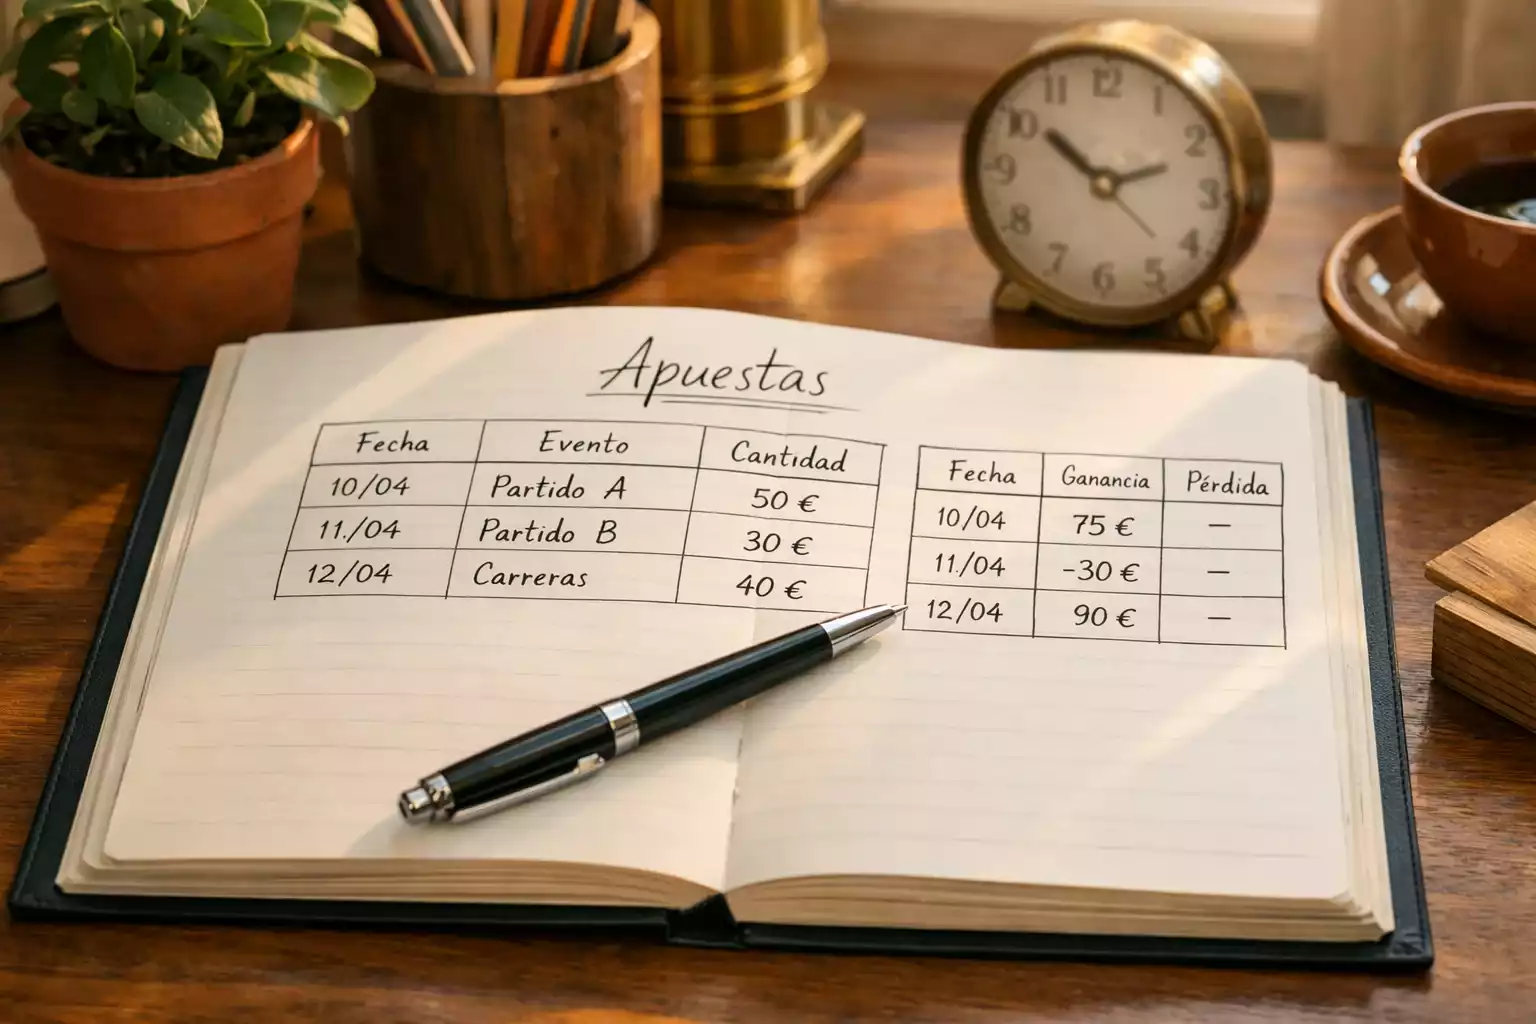 12
11
1
10
2
9
3
8
4
7
5
6
Apuestas
Fecha Evento Cantidad
10/04 Partido A 50 €
11./04 Partido B 30 €
12/04 Carreras 40 €
Fecha Ganancia Pérdida
10/04 75 € —
11./04 -30 € —
12/04 90 € —